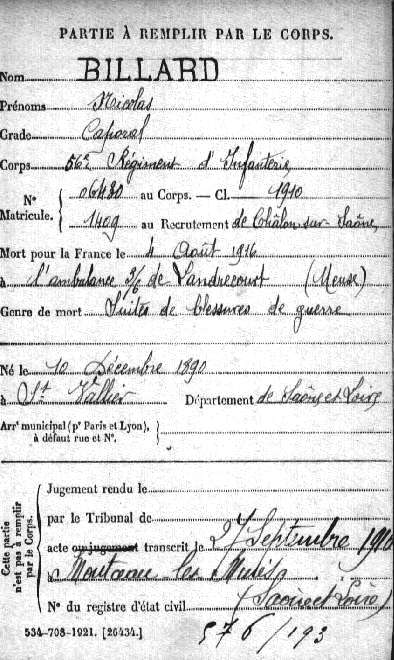 PARTIE À REMPLIR PAR LE CORPS.
Nom BILLARD
Prénoms Nicolas
Grade Caporal
Corps 56e Régiment d'Infanterie
N° Matricule. 06480 au Corps. — Cl. 1910
1409 au Recrutement de Châlon-sur-Saône
Mort pour la France le 4 Août 1916
à l'ambulance 3/6 de Landrecourt (Meuse)
Genre de mort Suites de blessures de guerre
Né le 10 Décembre 1890
à St Vallier Département de Saône et Loire
Arrt municipal (pr Paris et Lyon), à défaut rue et N°.
Cette partie n'est pas à remplir par le Corps.
Jugement rendu le
par le Tribunal de
acte ou jugement transcrit le 27 Septembre 1916
à Montceau-les-Mines
(Saône et Loire)
N° du registre d'état civil
534-708-1921. [26434.]
576/193